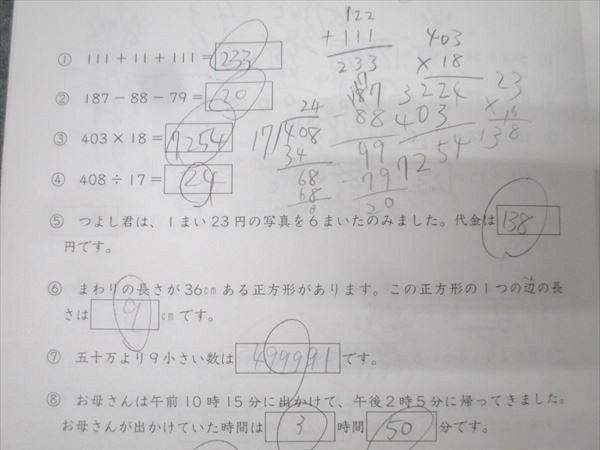 ① 111+11+111=233
② 187-88-79=20
③ 403×18=7254
④ 408÷17=24
122
+111
233
187
-88
99
-79
20
403
×18
3224
403
7254
24
17)408
34
68
68
0
23
138
⑤ つよし君は、1まい23円の写真を6まいたのみました。代金は138
円です。
⑥ まわりの長さが36cmある正方形があります。この正方形の1つの辺の長
さは9cmです。
⑦ 五十万より9小さい数は499991です。
⑧ お母さんは午前10時15分に出かけて、午後2時5分に帰ってきました。
お母さんが出かけていた時間は3時間50分です。